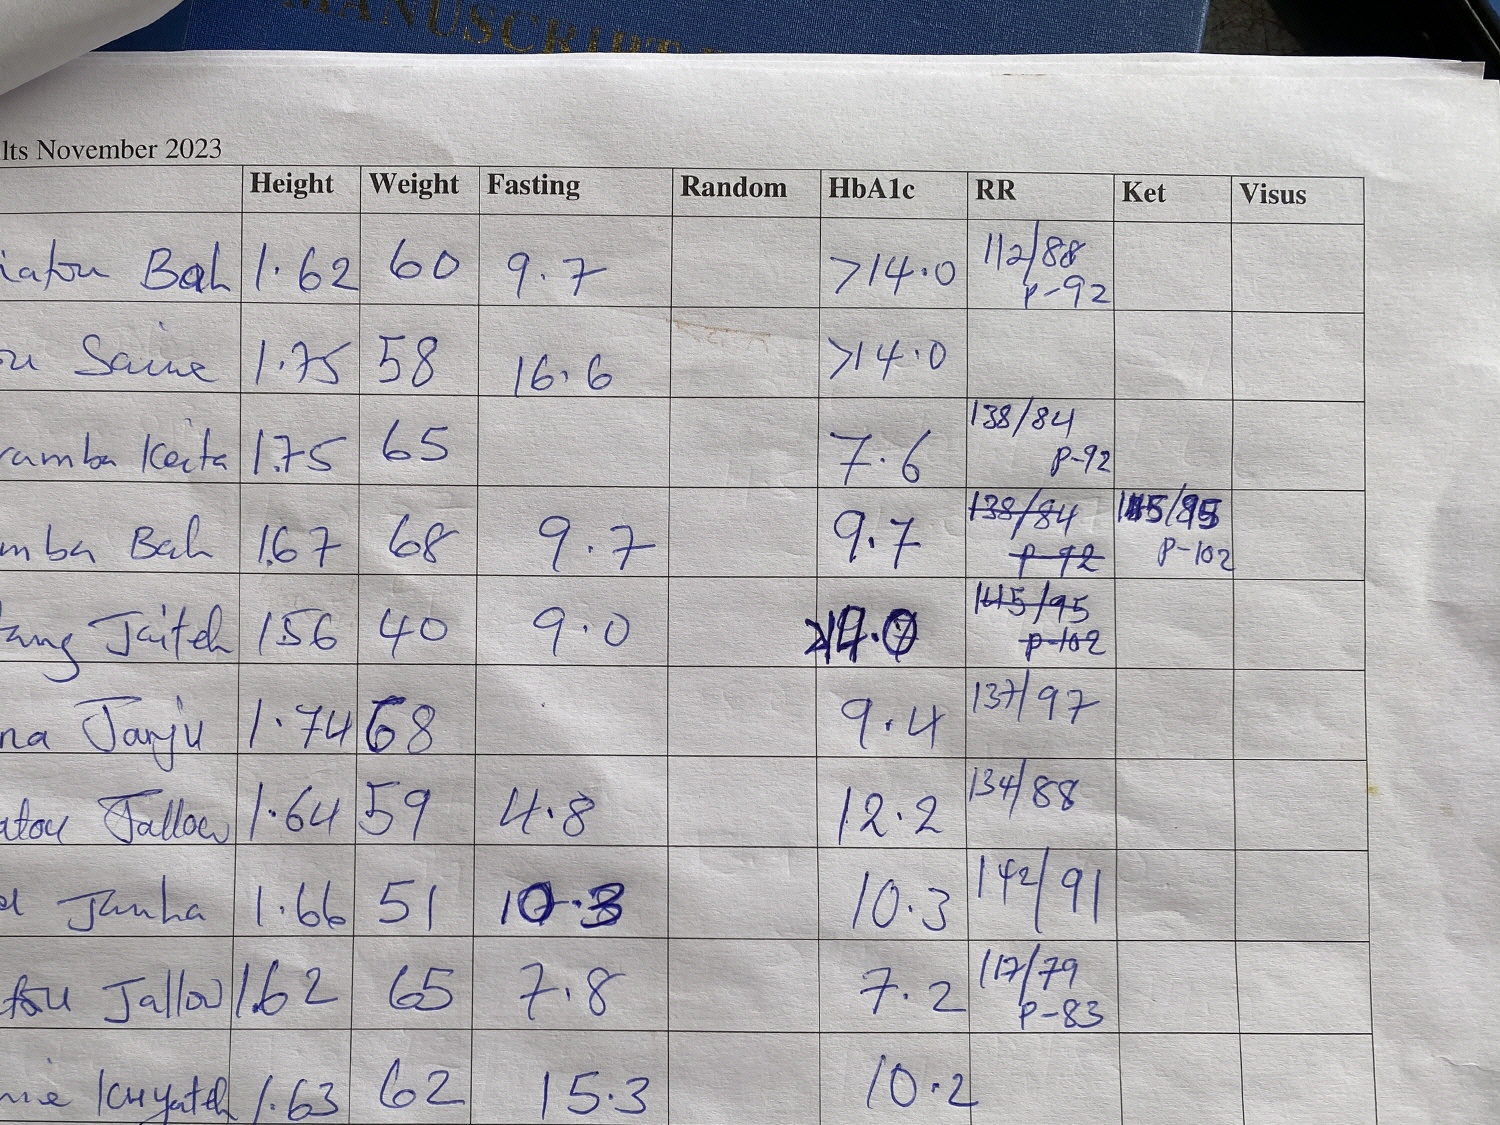 MANUSCRIPT
lts November 2023
Height Weight Fasting Random HbA1c RR Ket Visus
iatou Bah 1.62 60 9.7 >14.0 112/88 P-92
ou Saine 1.75 58 16.6 >14.0
ramba Keita 1.75 65 7.6 138/84 P-92
mba Bah 1.67 68 9.7 9.7 138/84 P-92 145/95 P-102
tang Jaiteh 1.56 40 9.0 145/95 P-102
na Janju 1.74 68 9.4 137/97
atou Jallow 1.64 59 4.8 12.2 134/88
Janha 1.66 51 10.3 10.3 142/91
tou Jallow 1.62 65 7.8 7.2 117/79 P-83
nie Kuyateh 1.63 62 15.3 10.2